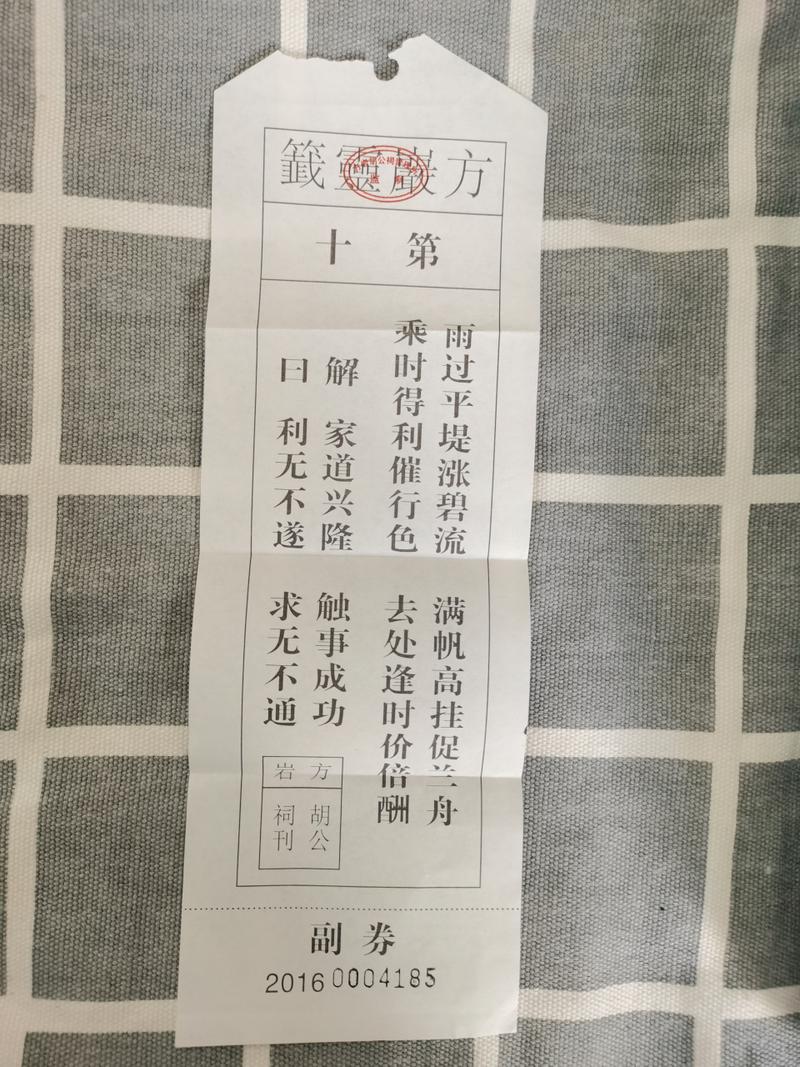 方巖靈籤
第十
雨过平堤涨碧流 满帆高挂促兰舟
乘时得利催行色 去处逢时价倍酬
解 家道兴隆 触事成功
曰 利无不遂 求无不通
方岩
胡公
祠刊
副券
2016 0004185